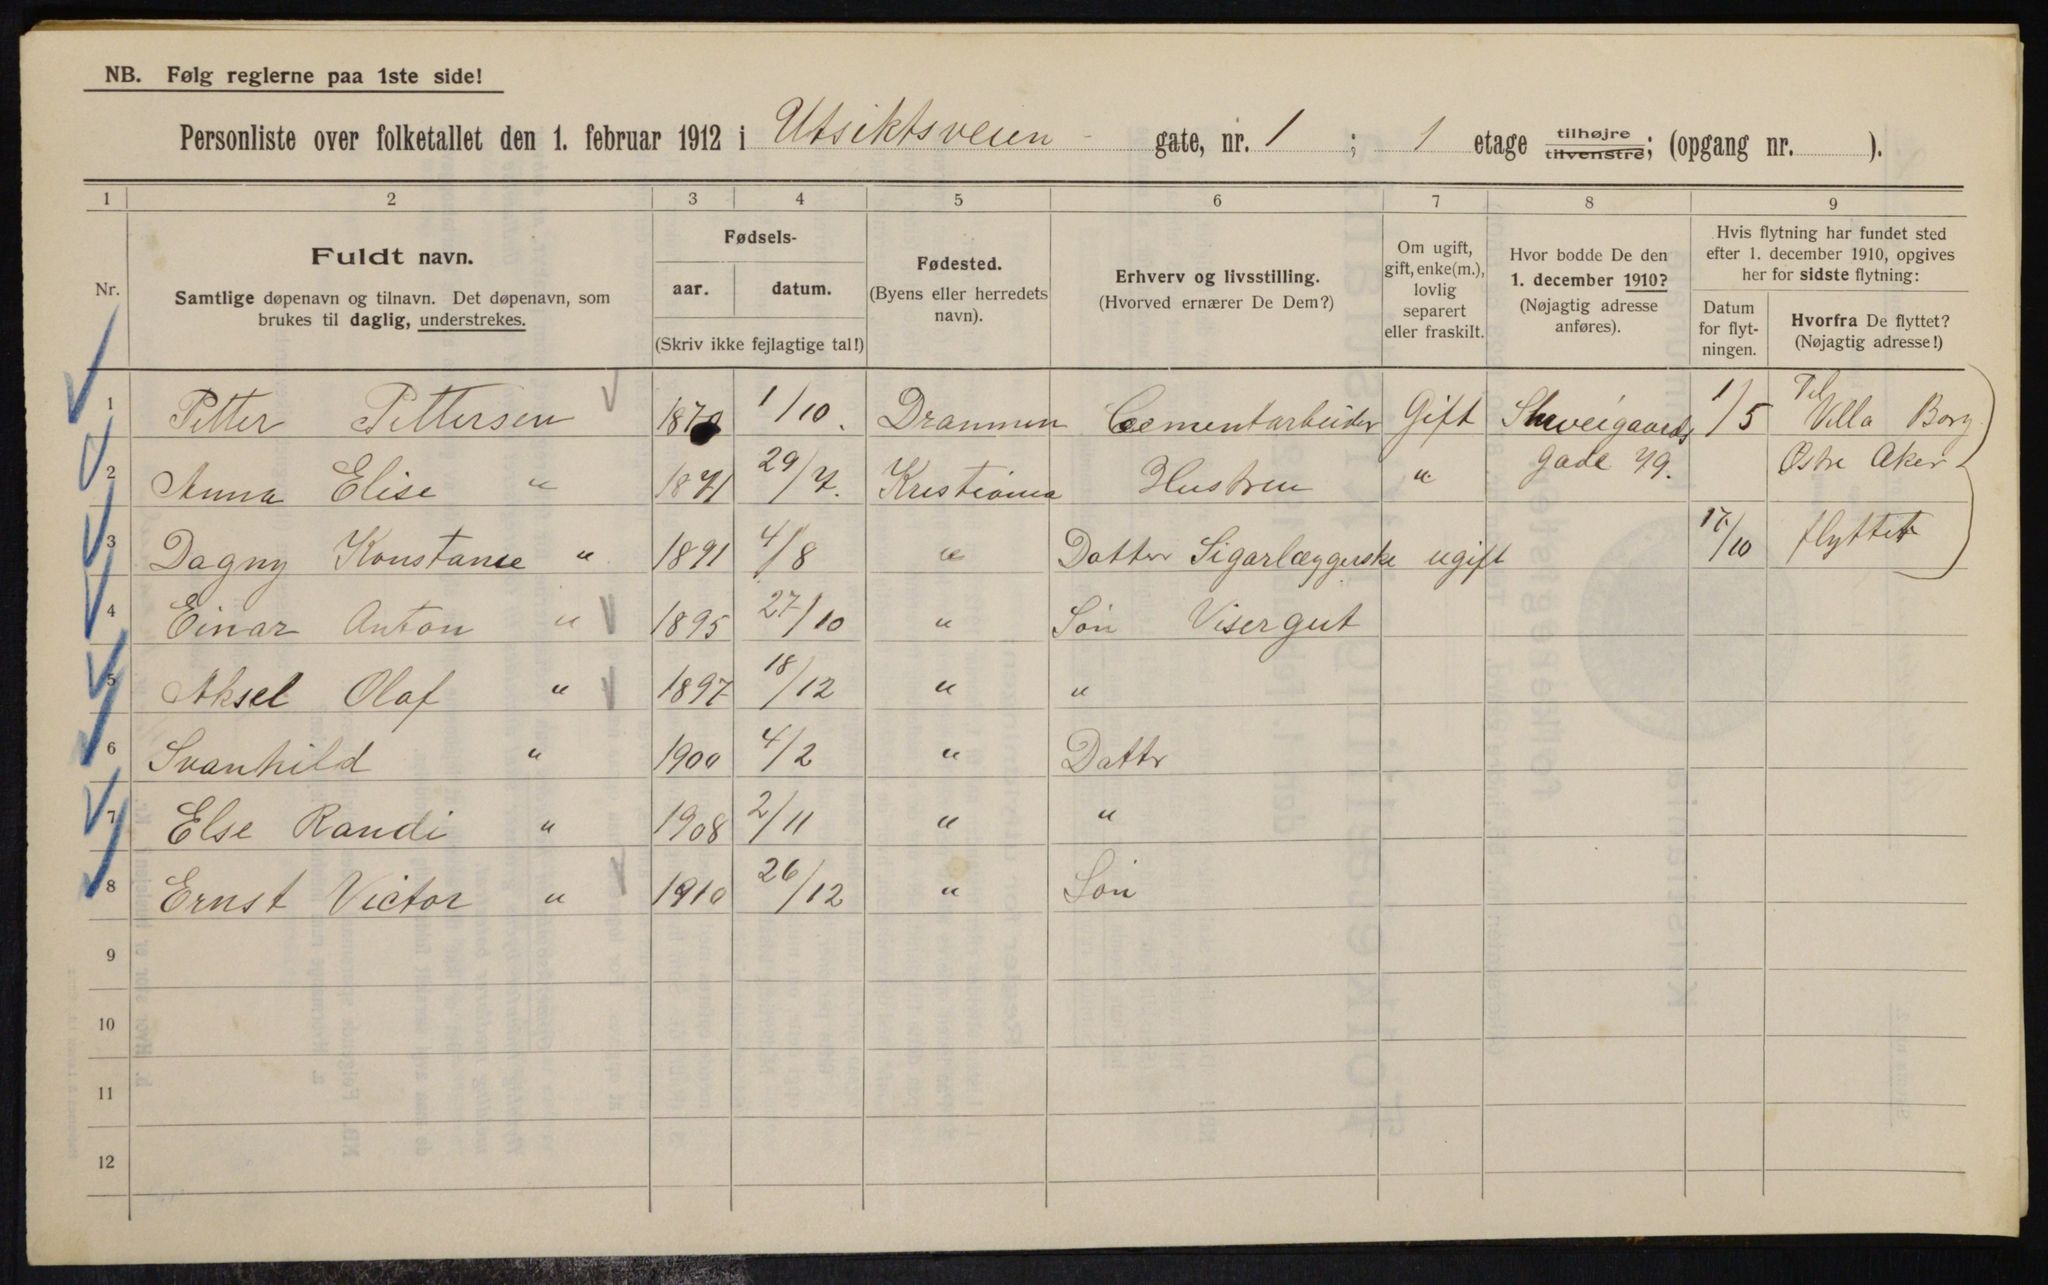 NB. Følg reglerne paa 1ste side!
Personliste over folketallet den 1. februar 1912 i Utsiktsveien gate, nr. 1 ; 1 etage tilhøjre tilvenstre; (opgang nr. ).
1 2 3 4 5 6 7 8 9
Nr.
Fuldt navn.
Samtlige døpenavn og tilnavn. Det døpenavn, som
brukes til daglig, understrekes.
Fødsels-
aar. datum.
(Skriv ikke fejlagtige tal!)
Fødested.
(Byens eller herredets
navn).
Erhverv og livsstilling.
(Hvorved ernærer De Dem?)
Om ugift,
gift, enke(m.),
lovlig
separert
eller fraskilt.
Hvor bodde De den
1. december 1910?
(Nøjagtig adresse
anføres).
Hvis flytning har fundet sted
efter 1. december 1910, opgives
her for sidste flytning:
Datum
for flyt-
ningen.
Hvorfra De flyttet?
(Nøjagtig adresse!)
1 Petter Pettersen 1870 1/10. Drammen Cementarbeider Gift Shweigaards 1/5 Villa Borg
2 Anna Elise " 1871 29/7. Kristiania Hustru " gade 79. Østre Aker
3 Dagny Konstanse " 1891 4/8 " Datter Sigarlæggerske ugift 17/10 flyttet
4 Einar Anton " 1895 27/10 " Søn Visergut
5 Aksel Olaf " 1897 18/12 " "
6 Svanhild " 1900 4/2 " Datter
7 Else Randi " 1908 2/11 " "
8 Ernst Victor " 1910 26/12 " Søn
9
10
11
12